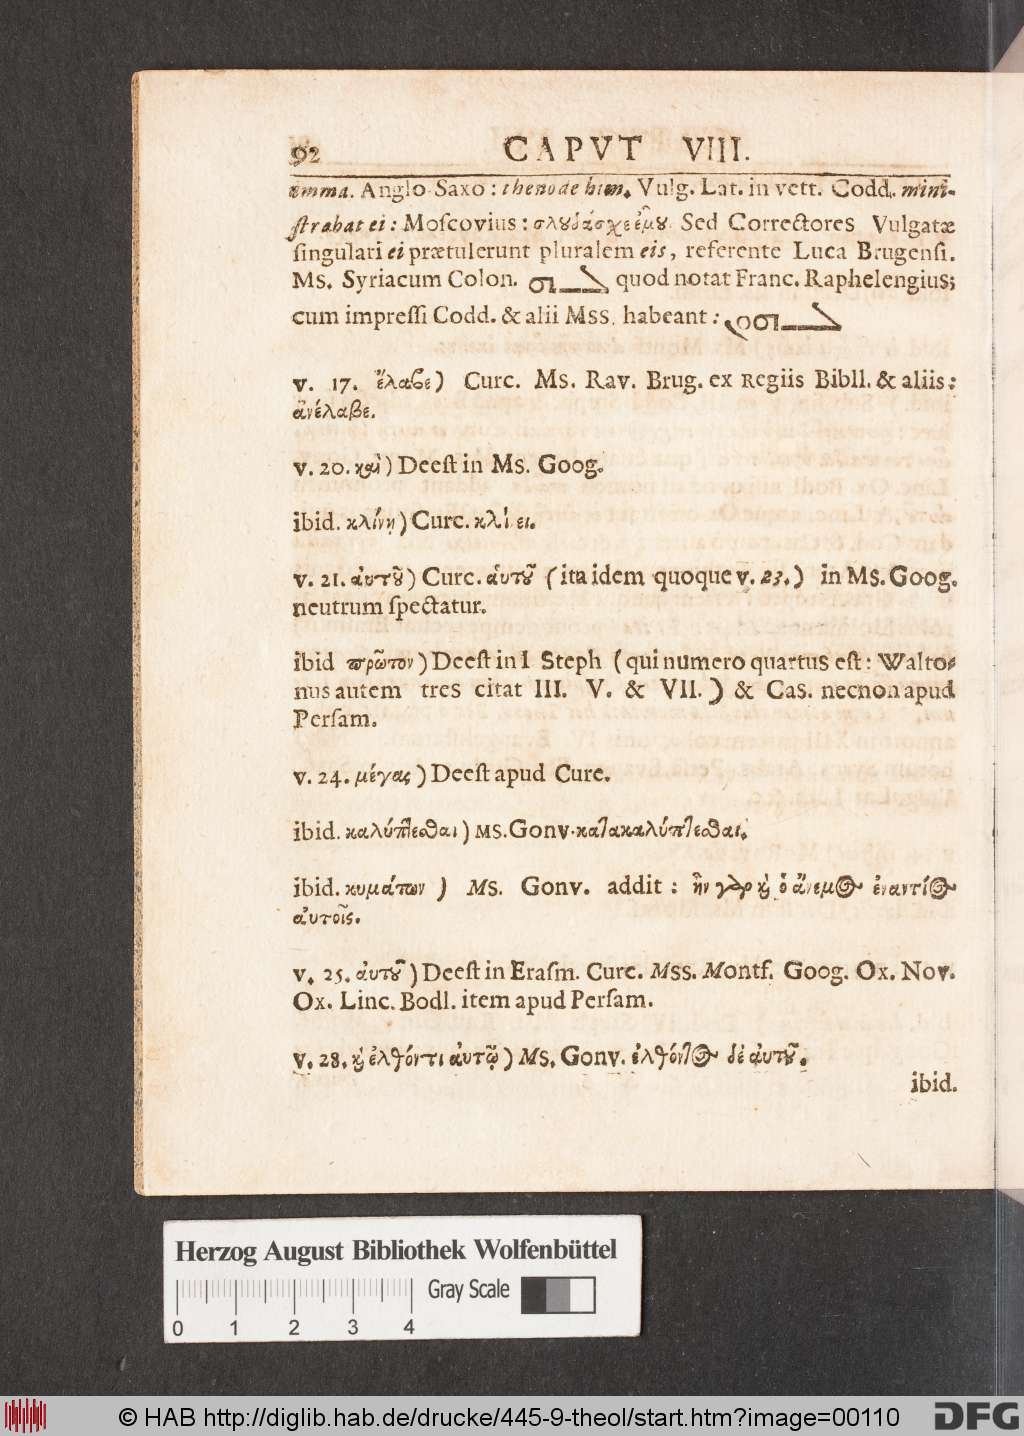 92 CAPVT VIII.
imma. Anglo-Saxo: thenode him. Vulg. Lat. in vett. Codd. mini-
ſtrabat ei: Moſcovius: σλουδάσχε ἐμȣ͂. Sed Correctores Vulgatæ
ſingulari ei prætulerunt pluralem eis, referente Luca Brugenſi.
Ms. Syriacum Colon. ܠܗ quod notat Franc. Raphelengius;
cum impreſſi Codd. & alii Mss. habeant: ܠܗܘܢ
v. 17. ἔλαβε) Curc. Ms. Rav. Brug. ex Regiis Bibll. & aliis:
ἀνέλαβε.
v. 20. καὶ) Deeſt in Ms. Goog.
ibid. κλίνῃ) Curc. κλίνει.
v. 21. ἀυτȣ͂) Curc. ἁυτȣ͂ (ita idem quoque v. 23.) in Ms. Goog.
neutrum ſpectatur.
ibid πρῶτον) Deeſt in I Steph (qui numero quartus eſt: Walto-
nus autem tres citat III. V. & VII.) & Caſ. necnon apud
Perſam.
v. 24. μέγας) Deeſt apud Curc.
ibid. καλύπτεσθαι) Ms. Gonv. κατακαλύπτεσθαι.
ibid. κυμάτων) Ms. Gonv. addit: ἦν γὰρ ϗ ὁ ἄνεμος ἐναντίος
ἀυτοῖς.
v. 25. ἀυτȣ͂) Deeſt in Eraſm. Curc. Mss. Montf. Goog. Ox. Nov.
Ox. Linc. Bodl. item apud Perſam.
v. 28. ϗ ἐλθόντι ἀυτῷ) Ms. Gonv. ἐλθόντος δὲ ἀυτȣ͂.
ibid.
Herzog August Bibliothek Wolfenbüttel
Gray Scale
0 1 2 3 4
© HAB http://diglib.hab.de/drucke/445-9-theol/start.htm?image=00110 DFG